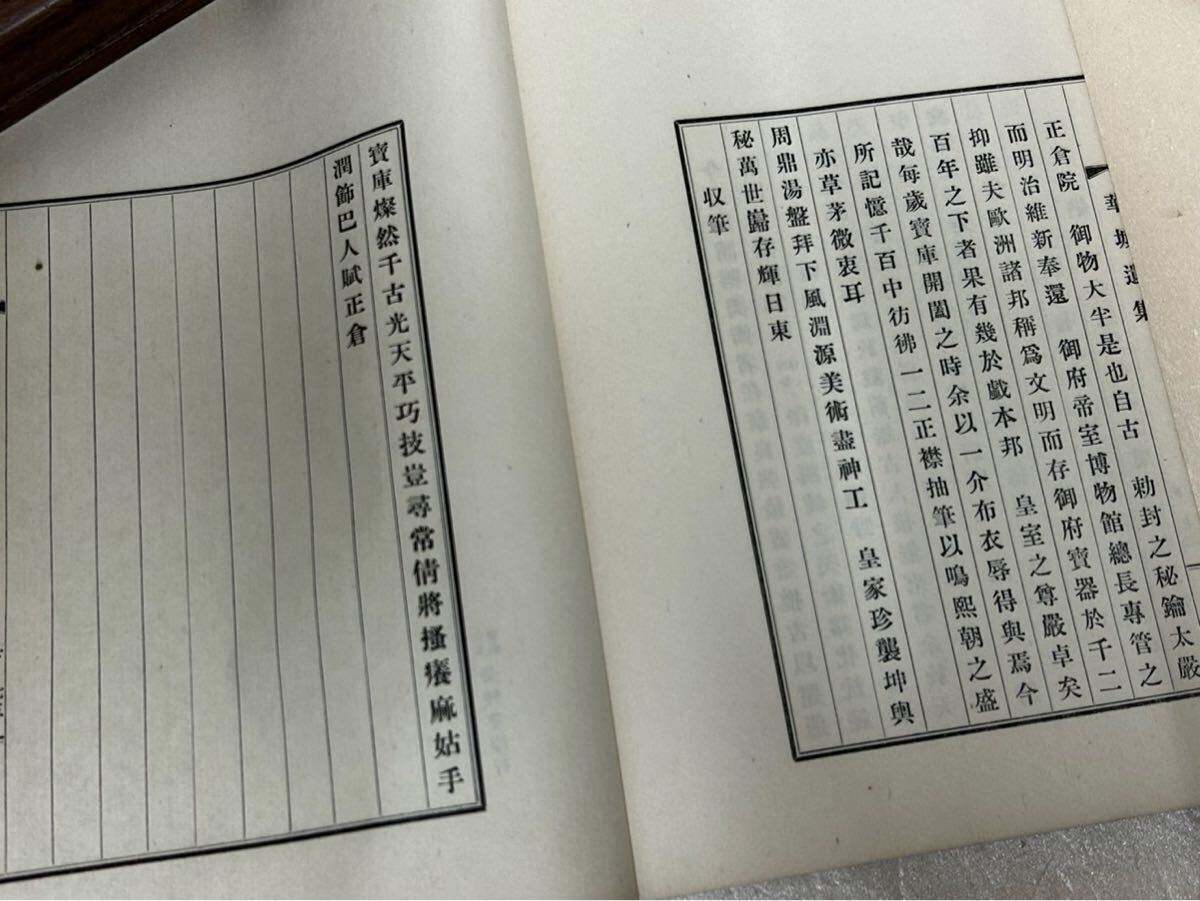 華城遺集
正倉院 御物大半是也自古 勅封之秘鑰太嚴
而明治維新奉還 御府帝室博物館總長專管之
抑雖夫歐洲諸邦稱爲文明而存御府寶器於千二
百年之下者果有幾於戲本邦 皇室之尊嚴卓矣
哉每歲寶庫開闔之時余以一介布衣辱得與焉今
所記憶千百中彷彿一二正襟抽筆以鳴熙朝之盛
亦草茅微衷耳
周鼎湯盤拜下風淵源美術盡神工 皇家珍襲坤輿
秘萬世巋存輝日東
収筆
寶庫燦然千古光天平巧技豈尋常倩將搔癢麻姑手
潤飾巴人賦正倉